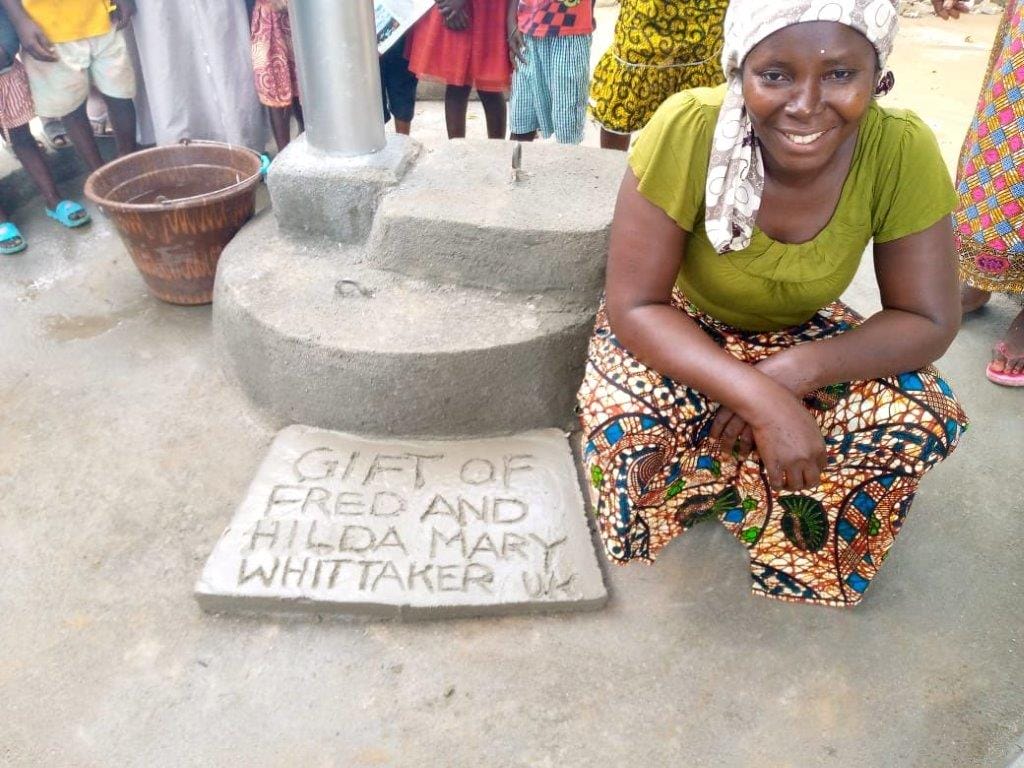 GIFT OF
FRED AND
HILDA MARY
WHITTAKER U.K